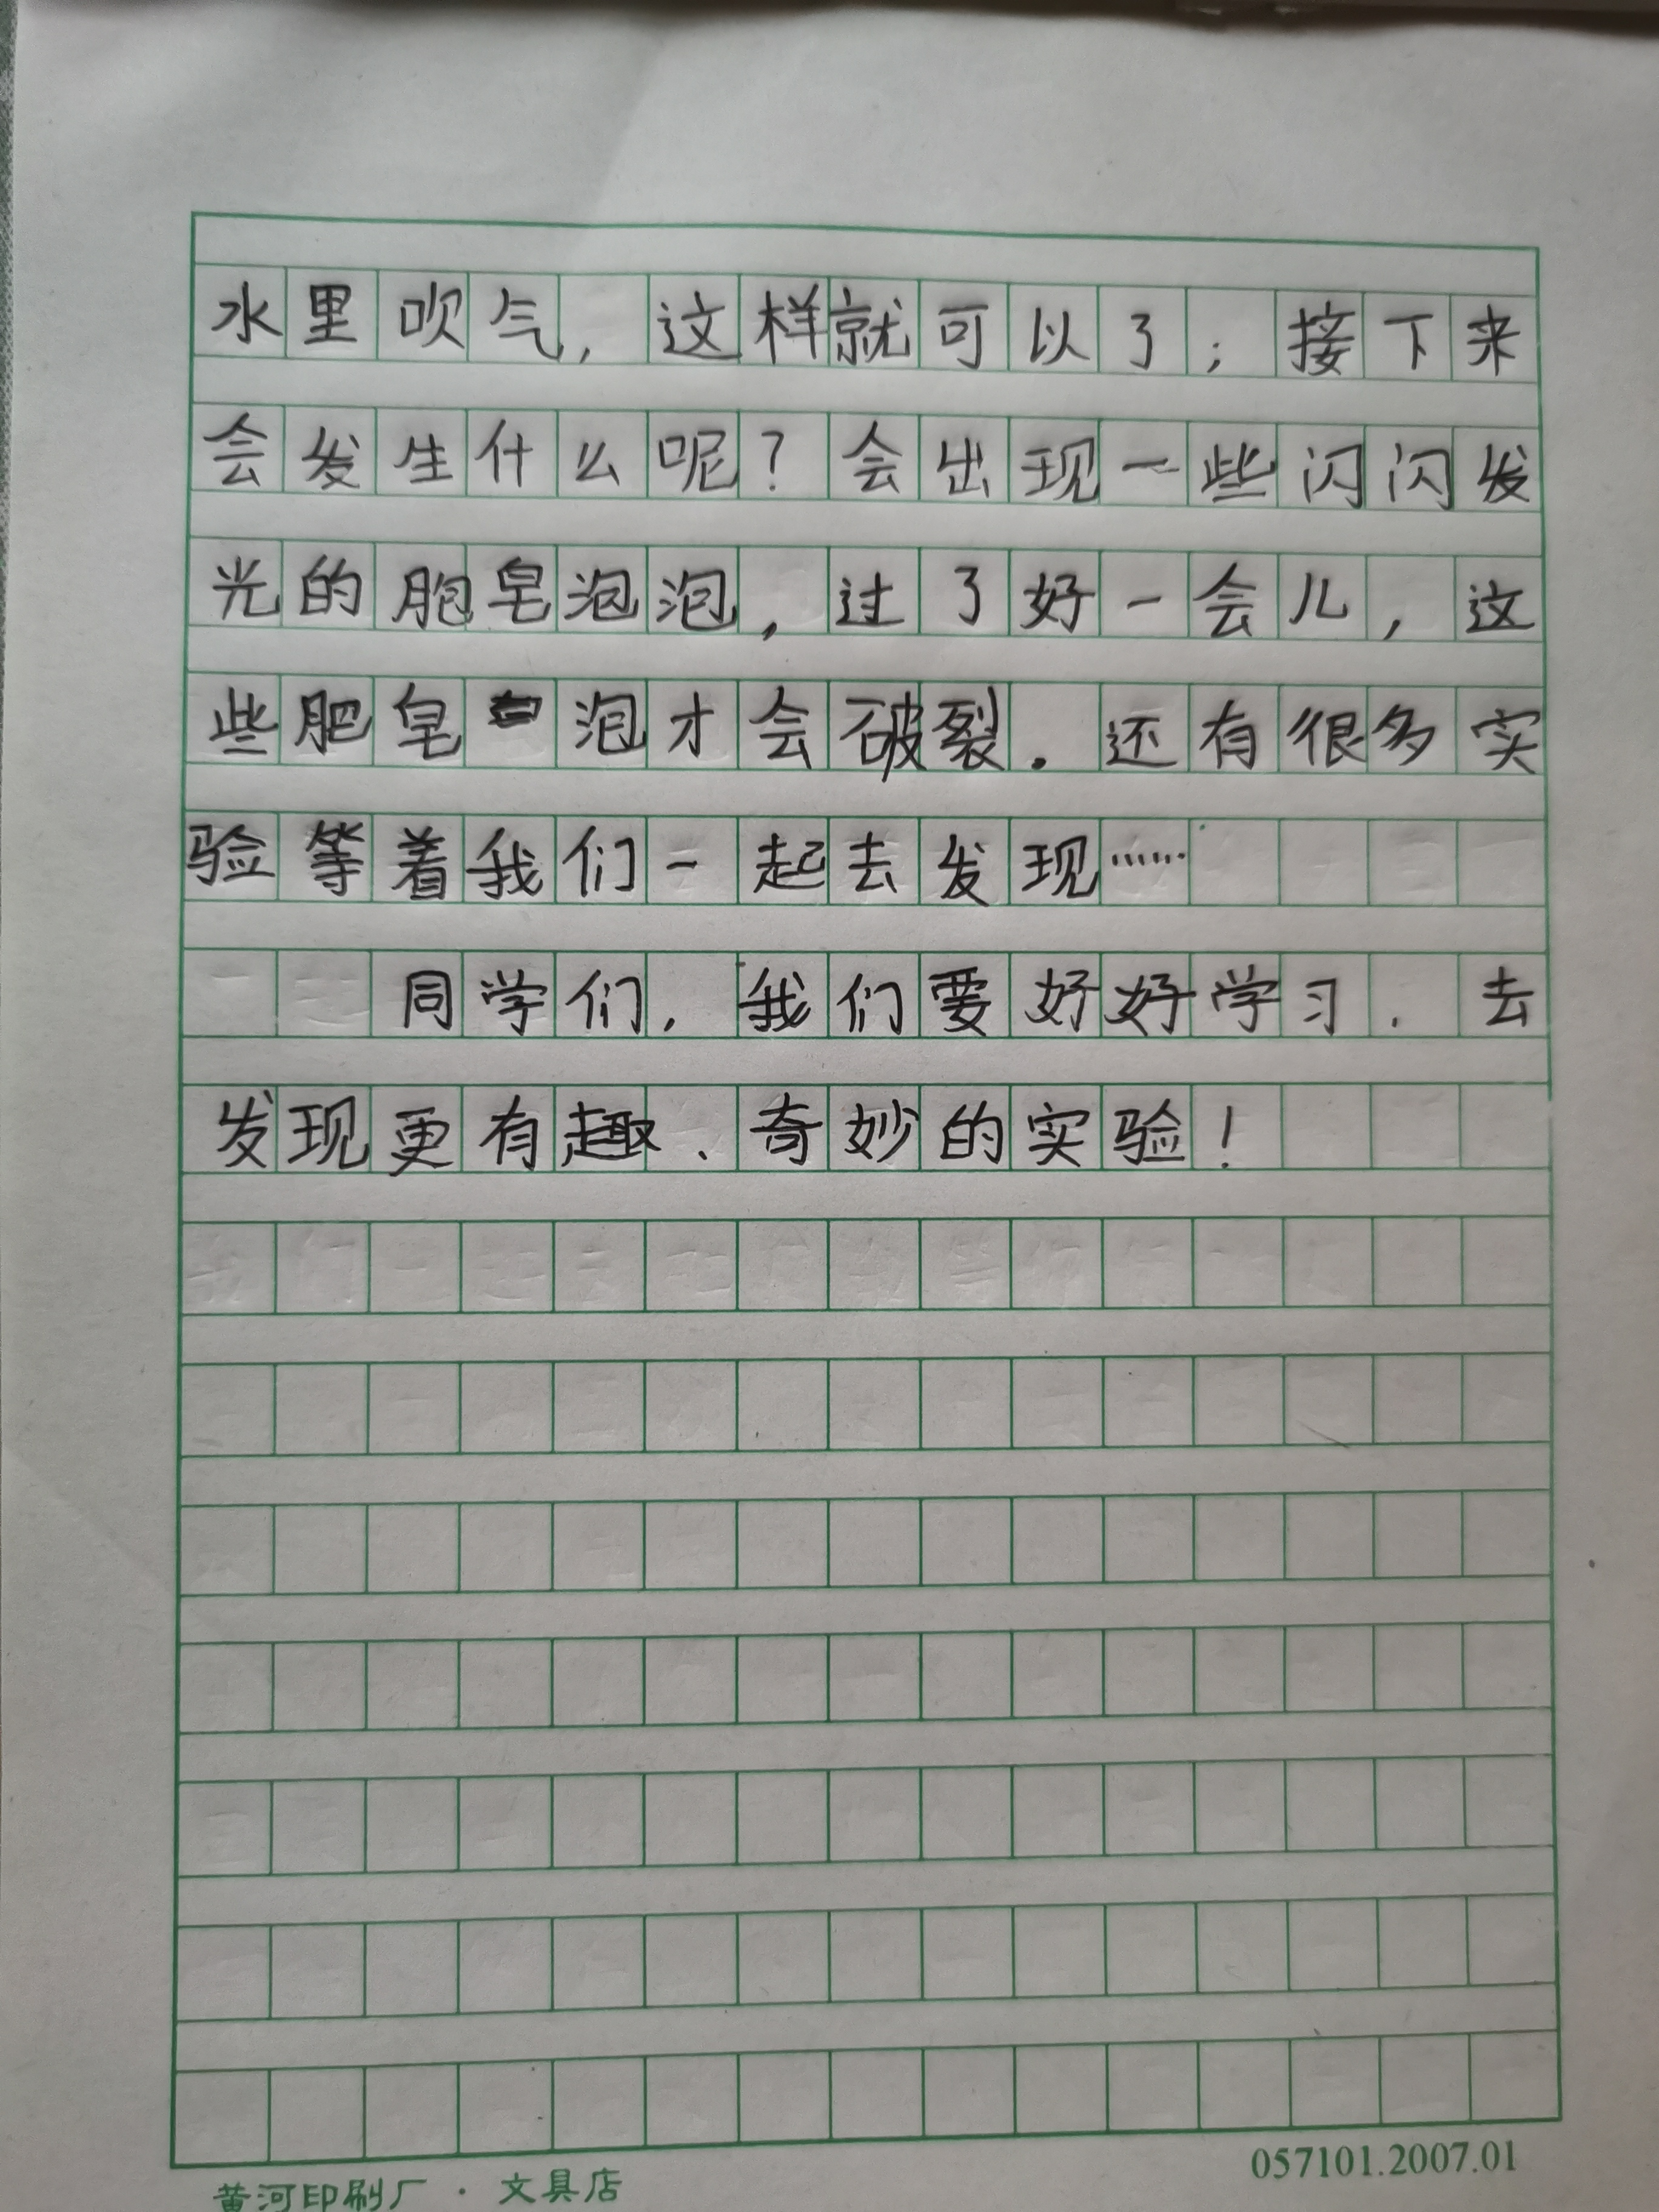 水里吹气，这样就可以了；接下来
会发生什么呢？会出现一些闪闪发
光的胞皂泡泡，过了好一会儿，这
些肥皂泡才会破裂．还有很多实
验等着我们一起去发现……
同学们，我们要好好学习．去
发现更有趣、奇妙的实验！
057101.2007.01
黄河印刷厂·文具店